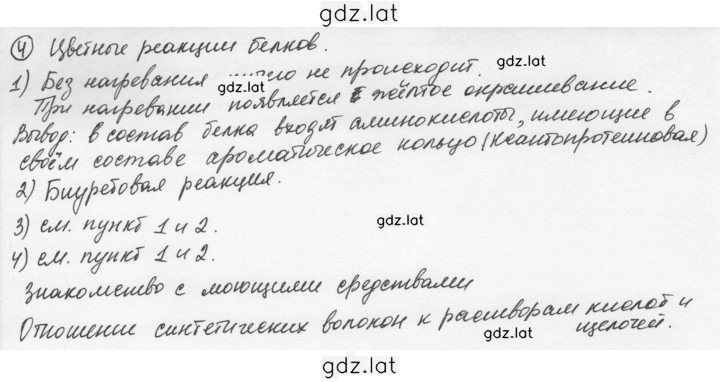 gdz.lat
④ Цветные реакции белков.
gdz.lat
1) Без нагревания ничего не происходит.
gdz.lat
При нагревании появляется жёлтое окрашивание.
Вывод: в состав белка входят аминокислоты, имеющие в
своём составе ароматическое кольцо (ксантопротеиновая)
2) Биуретовая реакция.
3) см. пункт 1 и 2.
gdz.lat
4) см. пункт 1 и 2.
Знакомство с моющими средствами
Отношение синтетических волокон к растворам кислот и
щелочей.
gdz.lat
gdz.lat